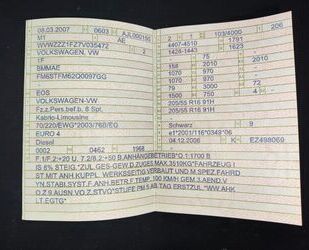 08.03.2007 0603 AJL000150
M1 AE
WVWZZZ1FZ7V035472 2
VOLKSWAGEN, VW
1F
BMMAE
FM6STFM62Q0097GG
EOS
VOLKSWAGEN-VW
Fz.z.Pers.bef.b. 8 Spl.
Kabrio-Limousine
70/220/EWG*2003/76B/EG
EURO 4
Diesel
0002 0462 1968
2 1 103/4000 206
4407-4510 1791
1426-1443 1623
75
158 2010
1070 970
1070 970
79 3000 72
4 1500
205/55 R16 91H
205/55 R16 91H
Schwarz 9
e1*2001/116*0349*06
04.12.2006 K EZ498069
F.1/F.2:+20 U. 7.2/8.2:+50 B.ANHANGEBETRIEB*O.1:1700 B
IS 8% STEIG.*ZUL.GES-GEW.D.ZUGES.MAX.3510KG*FAHRZEUG I
ST MIT ANH.KUPPL. WERKSSEITIG VERBAUT UND M.SPEZ.FAHRD
YN.STABI.SYST.F.ANH.BETR.F.TEMP. 100 KM/H GEM.3.AEND.V
O.Z 9.AUSN.VO.Z.STVO*STUFE PM 5 AB TAG ERSTZUL.*WW.AHK
LT.EGTG*